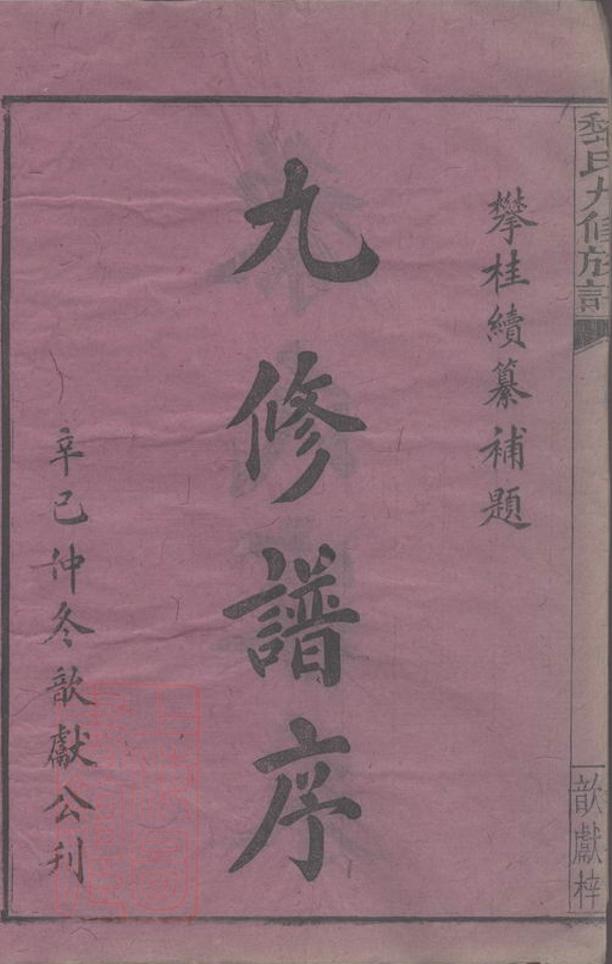 季氏九修族譜
歆獻梓
攀桂續纂補題
九修譜序
辛巳仲冬歆獻公刊